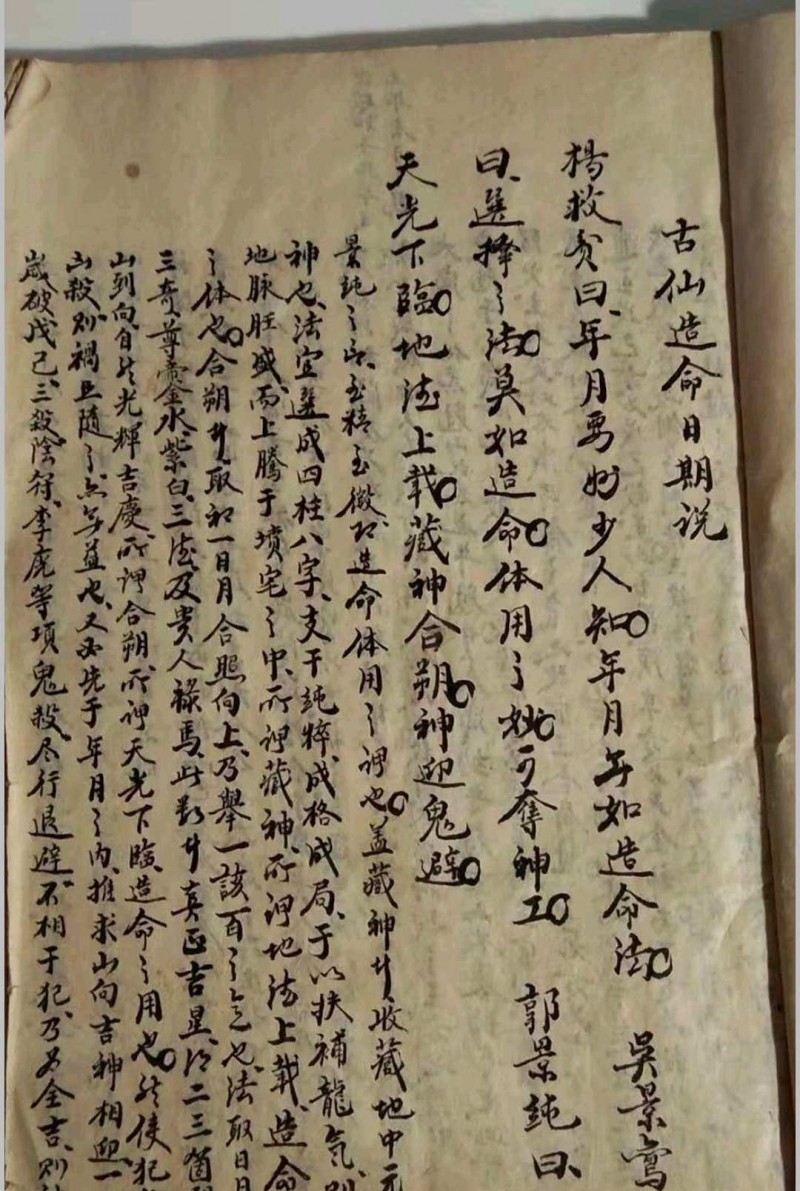 古仙造命日期说
楊救贫曰、年月要妙少人知、年月无如造命法、吳景鸾
曰、選擇之法、莫如造命、体用之妙、可奪神工、郭景純曰、
天光下臨、地德上载、藏神合朔、神迎鬼避、
景純之、至精至微、造命体用之谓也、盖藏神者收藏地中元
神也、法宜選成四柱八字、支干純粹、成格成局、于以扶補龍氣、则
地脉旺盛、而上騰于墳宅之中、所谓藏神、所谓地德上载、造命
之体也、合朔者取和一日月合照向上、乃舉一該百之意也、法取日月
三奇、尊帝金水、紫白、三德、及貴人禄馬、此数者真正吉星、得二三箇
山到向、自然光輝吉慶、所谓合朔、所谓天光下臨、造命之用也、然使犯
山殺、则禍且随之、无益也、又必先于年月之内、推求山向吉神相迎、一
嵗破戊己、三殺陰符、李廣等項鬼殺、尽行退避、不相干犯、乃为全吉、则